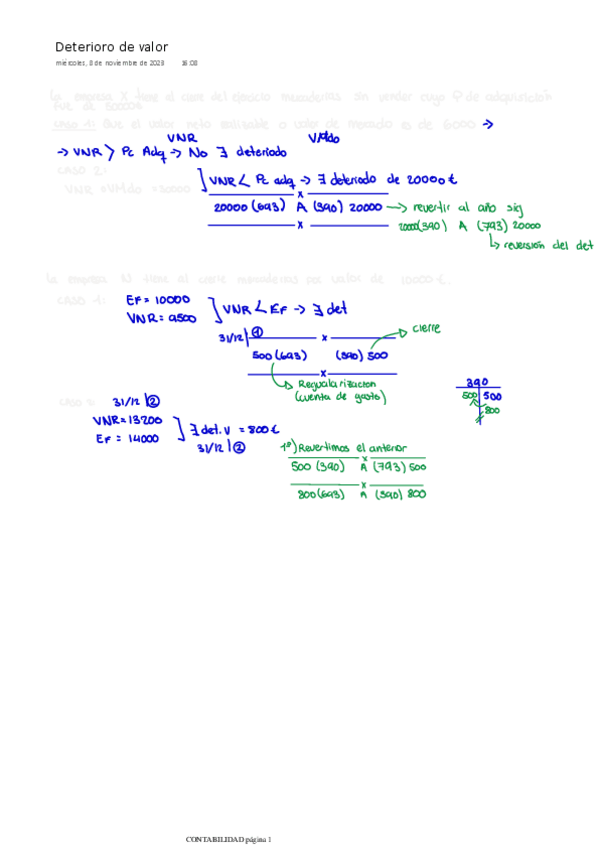 Deterioro de valor
miércoles, 8 de noviembre de 2023 16:08
La empresa X tiene al cierre del ejercicio mercaderías sin vender cuyo P de adquisición
fue de 50000€
CASO 1: Que el valor neto realizable o valor de mercado es de 6000 →
VNR V.Mdo
→ VNR > Pc Adq → No ∃ deteriodo
CASO 2:
VNR = VMdo = 30000
VNR < Pc adq → ∃ deteriodo de 20000 €
x
20000 (693) A (390) 20000 → revertir al año sig
x
20000 (390) A (793) 20000
↳ reversión del det
La empresa N tiene al cierre mercaderías por valor de 10000 €.
CASO 1:
EF = 10000
VNR = 9500
VNR < EF → ∃ det
31/12 | ① x
cierre
500 (693) (390) 500
x
Regualarizacion
(cuenta de gasto)
390
500 500
800
31/12 | ②
VNR = 13200
EF = 14000
∃ det. v = 800 €
31/12 | ②
1º) Revertimos el anterior
x
500 (390) A (793) 500
x
800 (693) A (390) 800
CONTABILIDAD página 1